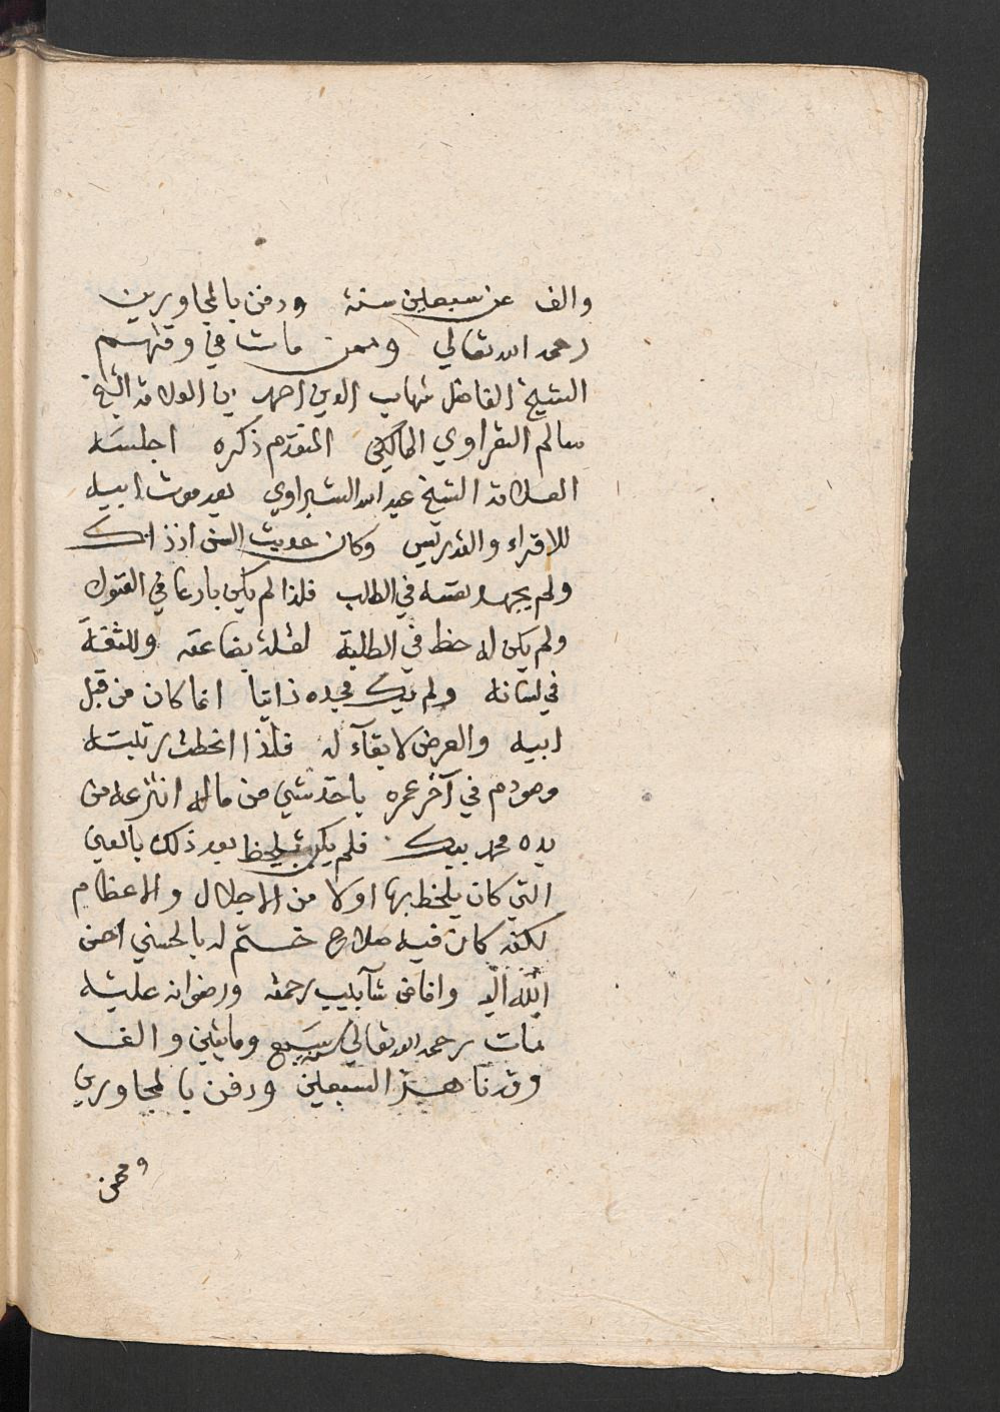 والف عن سبعين سنة ودفن بالمجاورين
رحمه الله تعالي وممن مات في وقتهم
الشيخ الفاضل شهاب الدين احمد بن العلامة الشيخ
سالم النفراوي المالكي المتقدم ذكره اجلسه
العلامة الشيخ عبد الله الشبراوي بعد موت ابيه
للاقراء والتدريس وكان حديث السن اذذاك
ولم يجهد نفسه في الطلب فلذا لم يكن بارعا في الفنون
ولم يكن له حظ في الطلبة لقلة بضاعته وللثغة
في لسانه ولم يك مجده ذاتيا انما كان من قبل
ابيه والعرض لا بقآء له فلذا انحطت رتبته
وصودم في آخر عمره باخذ شي من ماله انتزعه من
يده محمد بيك فلم يكن يلحظ بعد ذلك بالعين
التي كان يلحظ بها اولا من الاجلال والاعظام
لكنه كان فيه صلاح ختم له بالحسني احسن
الله اليه وافاض شآبيب رحمته ورضوانه عليه
مات رحمه الله تعالي سنة سبع ومايتين والف
وقد ناهز السبعين ودفن بالمجاورين
وممن